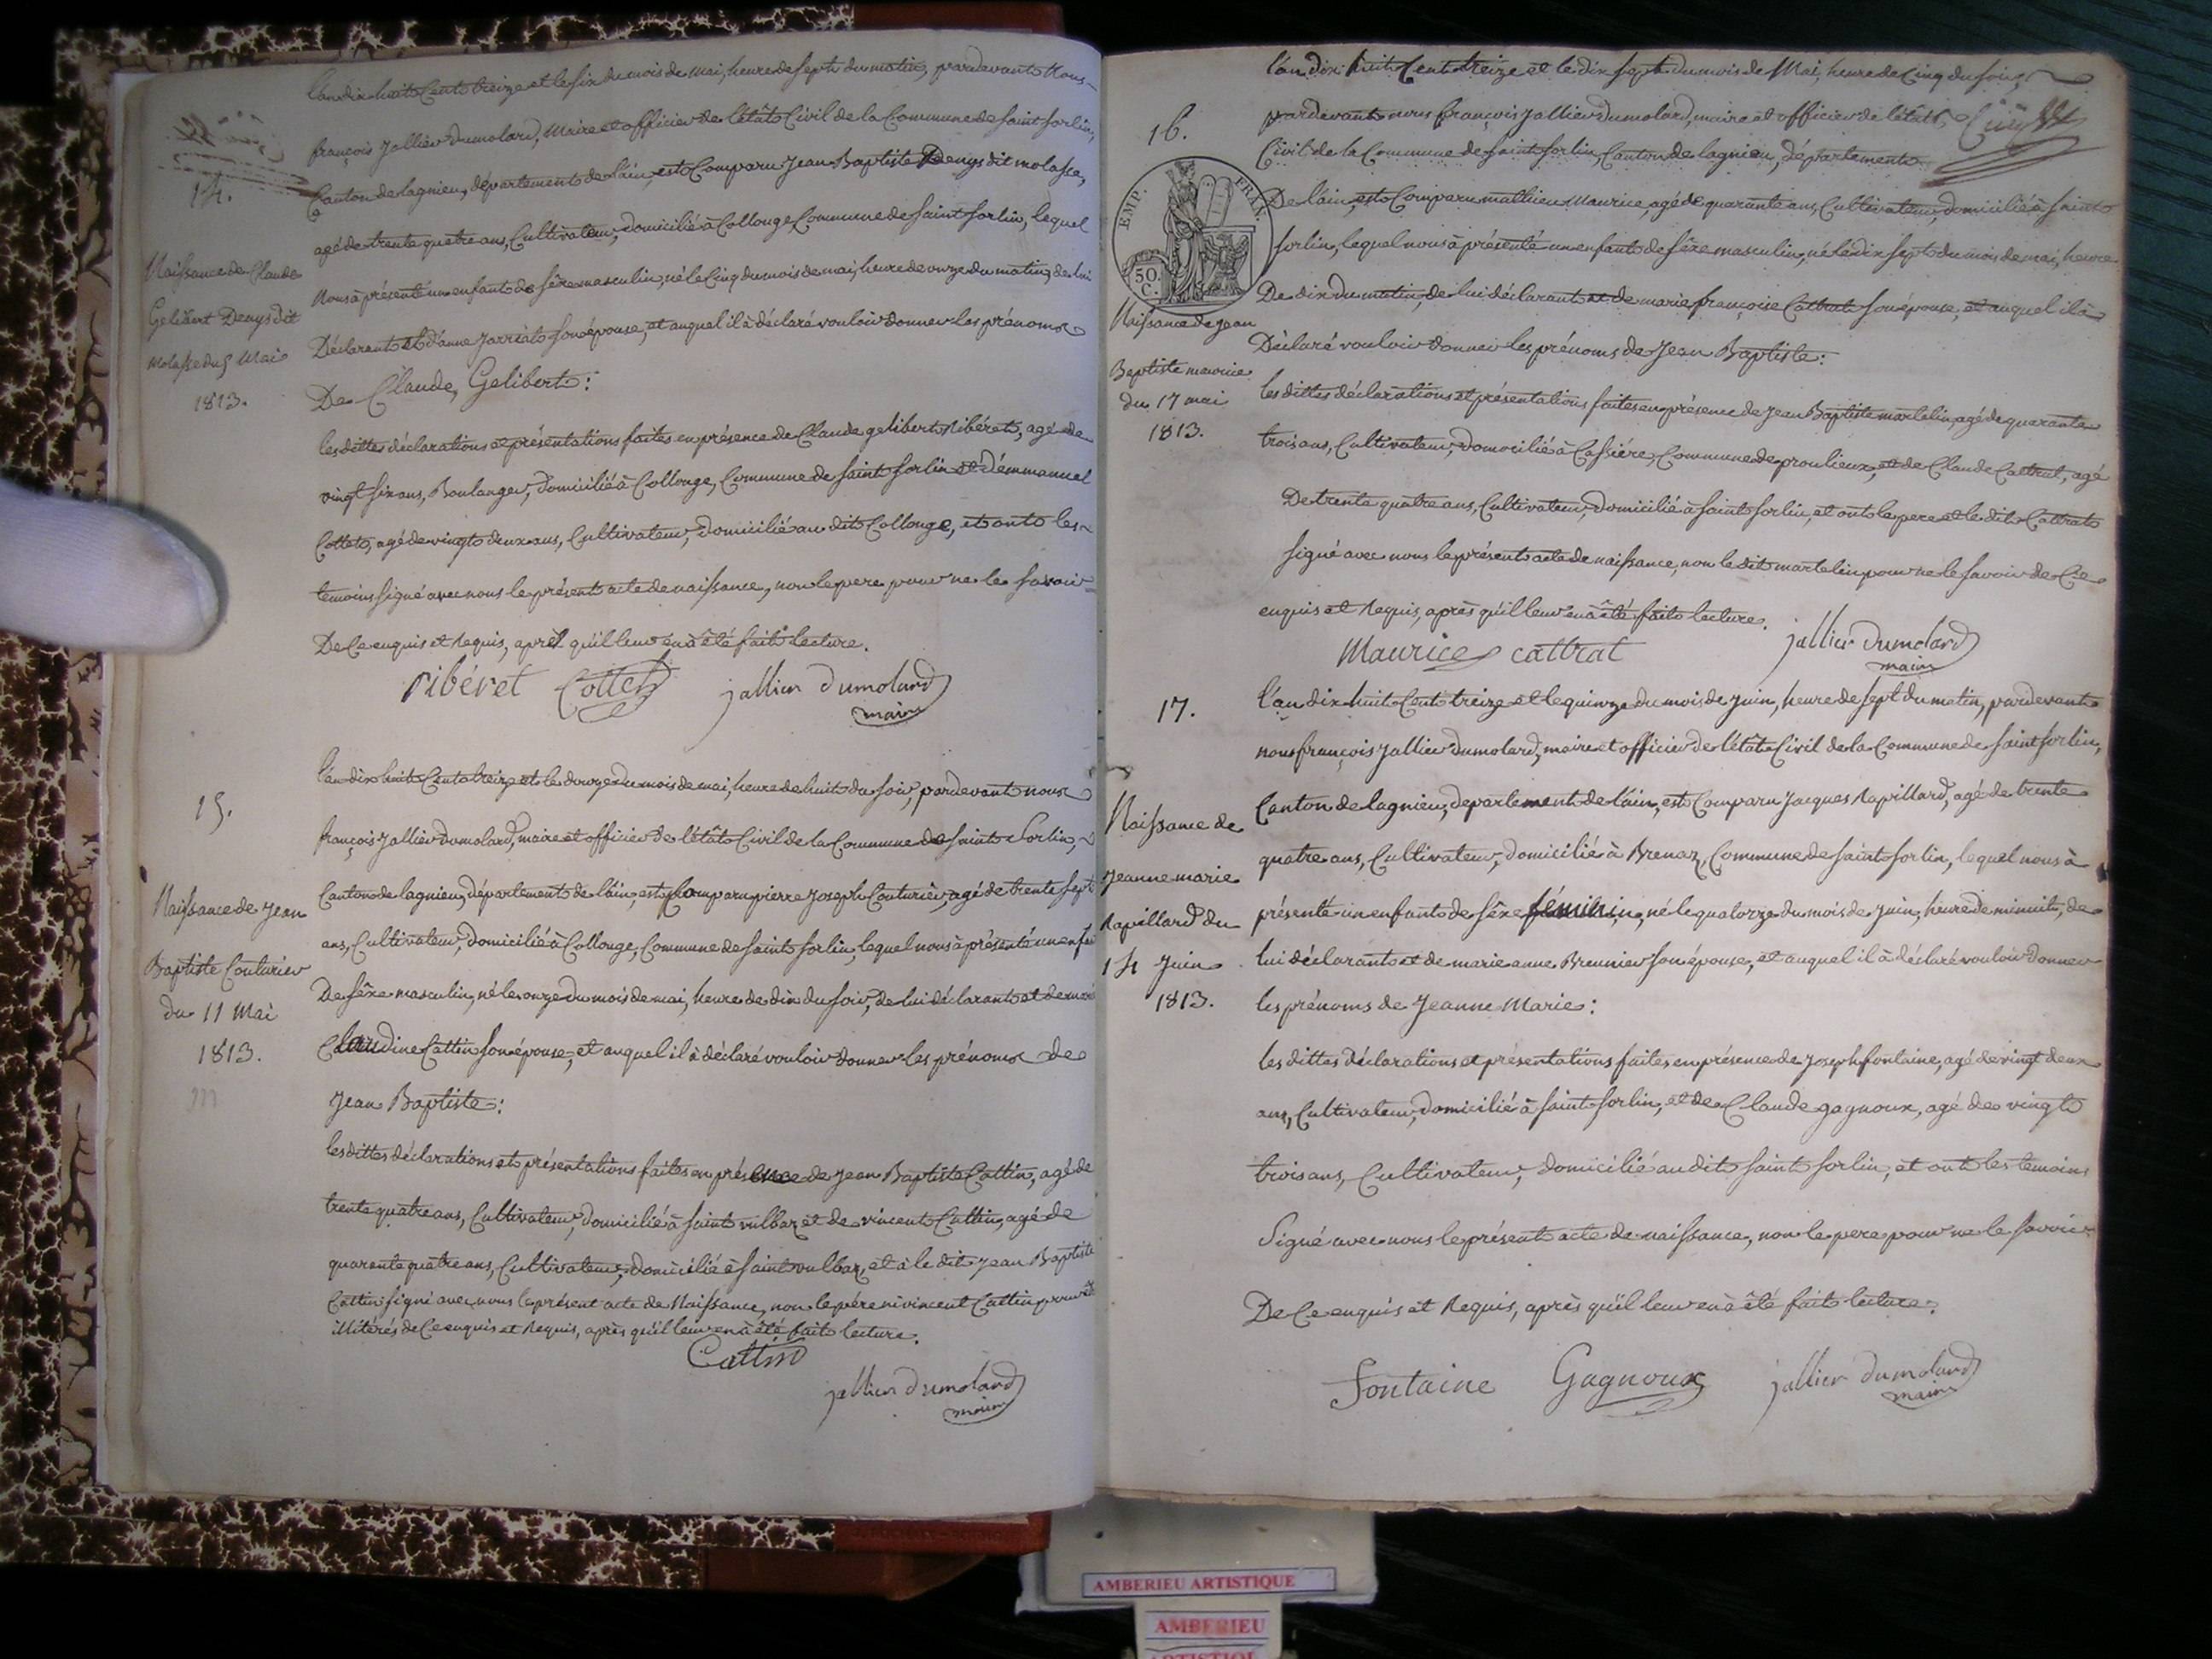 14.
Naissance de Claude
Gelibert Denys dit
molasse du 5 Mai
1813.
L'an dix huit Cent treize et le six du mois de Mai, heure de sept du matin, pardevant Nous
françois Jallier Dumolard, Maire et officier de l'état Civil de la Commune de saint sorlin,
Canton de lagnieu, département de l'ain, est Comparu Jean Baptiste Denys dit molasse,
agé de trente quatre ans, Cultivateur, domicilié à Collonge, Commune de saint sorlin, lequel
Nous à présenté un enfant de sêxe masculin, né le Cinq du mois de mai, heure de onze du matin, de lui
Déclarant et d'anne Jarriat son épouse, et auquel il à déclaré vouloir donner les prénoms
De Claude, Gelibert:
les dittes déclarations et présentations faites en présence de Claude gelibert Ribéret, agé de
vingt six ans, Boulanger, domicilié à Collonge, Commune de saint sorlin et d'émmanuel
Cottet, agé de vingt deux ans, Cultivateur, domicilié au dit Collonge, et ont les
temoins signé avec nous le présent acte de naissance, non le pere pour ne le savoir
De Ce enquis et Requis, après qu'il leur en à été fait lecture.
ribéret Cottet jallier dumolard
maire
15.
Naissance de Jean
Baptiste Couturier
du 11 Mai
1813.
l'an dix huit Cent treize et le douze du mois de mai, heure de huit du soir, pardevant nous
françois Jallier Dumolard, maire et officier de l'état Civil de la Commune de saint Sorlin,
Canton de lagnieu, département de l'ain, est Comparu pierre Joseph Couturier, agé de trente sept
ans, Cultivateur, domicilié à Collonge, Commune de saint sorlin, lequel nous à présenté un enfant
De sêxe masculin, né le onze du mois de mai, heure de dix du soir, de lui déclarant et de
Claudine Cattin son épouse, et auquel il à déclaré vouloir donner les prénoms de
Jean Baptiste:
les dittes déclarations et présentations faites en présence de Jean Baptiste Cattin, agé de
trente quatre ans, Cultivateur, domicilié à saint vulbaz et de vincent Cattin, agé de
quarante quatre ans, Cultivateur, domicilié à saint vulbaz, et à le dit Jean Baptiste
Cattin signé avec nous le présent acte de Naissance, non le pére ni vincent Cattin pour
illitérés de Ce enquis et Requis, après qu'il leur en à été fait lecture.
Cattin
jallier dumolard
maire
16.
EMP. FRAN.
50.
C.
Naissance de Jean
Baptiste maurice
du 17 mai
1813.
l'an dix huit Cent treize et le dix sept du mois de Mai, heure de Cinq du soir,
pardevant nous françois Jallier Dumolard, maire et officier de l'état
Civil de la Commune de saint sorlin, Canton de lagnieu, département
De l'ain, est Comparu mathieu Maurice, agé de quarante ans, Cultivateur, domicilié à saint
sorlin, lequel nous à présenté un enfant de sêxe masculin, né le dix sept du mois de mai, heure
De dix du matin, de lui déclarant et de marie françoise Cattrat son épouse, et auquel il à
Déclaré vouloir donner les prénoms de Jean Baptiste:
les dittes déclarations et présentations faites en présence de Jean Baptiste martelin agé de quarante
trois ans, Cultivateur, domicilié à Cassiére, Commune de proulieux, et de Claude Cattrat, agé
De trente quatre ans, Cultivateur, domicilié à saint sorlin, et ont le pere et le dit Cattrat
signé avec nous le présent acte de naissance, non le dit martelin pour ne le savoir de Ce
enquis et Requis, après qu'il leur en à été fait lecture.
Maurice cattrat jallier dumolard
maire
17.
Naissance de
Jeanne marie
Rapillard du
14 Juin
1813.
l'an dix huit Cent treize et le quinze du mois de Juin, heure de sept du matin, pardevant
nous françois Jallier Dumolard, maire et officier de l'état Civil de la Commune de saint sorlin,
Canton de lagnieu, departement de l'ain, est Comparu Jacques Rapillard, agé de trente
quatre ans, Cultivateur, domicilié à Brenaz, Commune de saint sorlin, lequel nous à
présenté un enfant de sêxe féminin, né le quatorze du mois de Juin, heure de minuit, de
lui déclarant et de marie anne Breunier son épouse, et auquel il à déclaré vouloir donner
les prénoms de Jeanne Marie:
les dittes déclarations et présentations faites en présence de Joseph fontaine, agé de vingt deux
ans, Cultivateur, domicilié à saint sorlin, et de Claude gagnoux, agé de vingt
trois ans, Cultivateur, domicilié au dit saint sorlin, et ont les temoins
Signé avec nous le présent acte de naissance, non le pere pour ne le savoir
De Ce enquis et Requis, après qu'il leur en à été fait lecture.
fontaine Gagnoux jallier dumolard
maire
AMBERIEU ARTISTIQUE
AMBERIEU
ARTISTIQUE